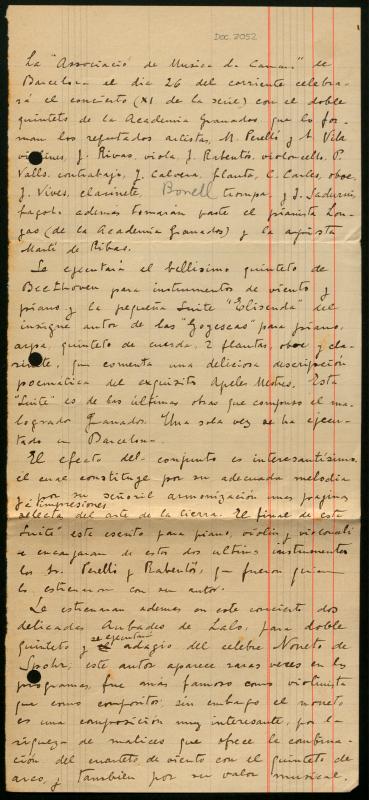 Doc. 2052
La "Associació de Musica da Camara" de
Barcelona el dia 26 del corriente celebra-
rá el concierto (XI de la serie) con el doble
quinteto de la Academia Granados, que lo for-
man los reputados artistas, M. Perelló y A. Vila
violines, J. Ribas, viola, J. Rabentós, violoncello, P.
Valls, contrabajo, J. Calvera, flauta, C. Carles, oboe,
J. Vives, clarinete, Bonell trompa, y J. Sadurní,
fagot. ademas tomarán parte el pianista Lon-
gas (de la Academia Granados) y la arpista
Martí de Ribas.
Se ejecutará el bellísimo quinteto de
Beethoven para instrumentos de viento y
piano y la pequeña Suite "Elisenda" del
insigne autor de las "Goyescas" para piano,
arpa, quinteto de cuerda, 2 flautas, oboe y cla-
rinete, que comenta una deliciosa descripción
poematica del exquisito Apeles Mestres. Esta
"Suite" es de las últimas obras que compuso el ma-
logrado Granados. Una sola vez se ha ejecu-
tado en Barcelona.
El efecto del conjunto es interesantísimo,
el cual constituye por su adecuada melodia
e impresiones
y por su señoril armonización unas paginas
selecta del arte de la tierra. El final de esta
Suite está escrito para piano, violin y violoncello
se encargaran de estos dos ultimos instrumentos
los Srs. Perelló y Rabentós, que fueron quienes
lo estrenaron con su autor.
Se estrenaran ademas en este concierto dos
delicadas Aubades de Lalo, para doble
se ejecutará
quinteto y el adagio del celebre Noneto de
Spohr; este autor aparece raras veces en los
programas, fue más famoso como violinista
que como compositor, sin embargo el noneto
es una composición muy interesante, por la
riqueza de matices que ofrece la combina-
ción del cuarteto de viento con el quinteto de
arco, y también por su valor musical.